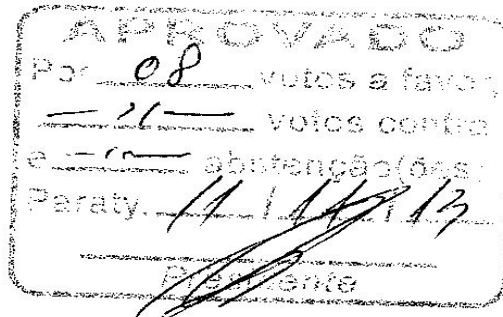 APROVADO
Por 08 votos a favor,
— // — votos contra
e — // — abstenção(ões)
Paraty, 11 / 11 / 13
Presidente